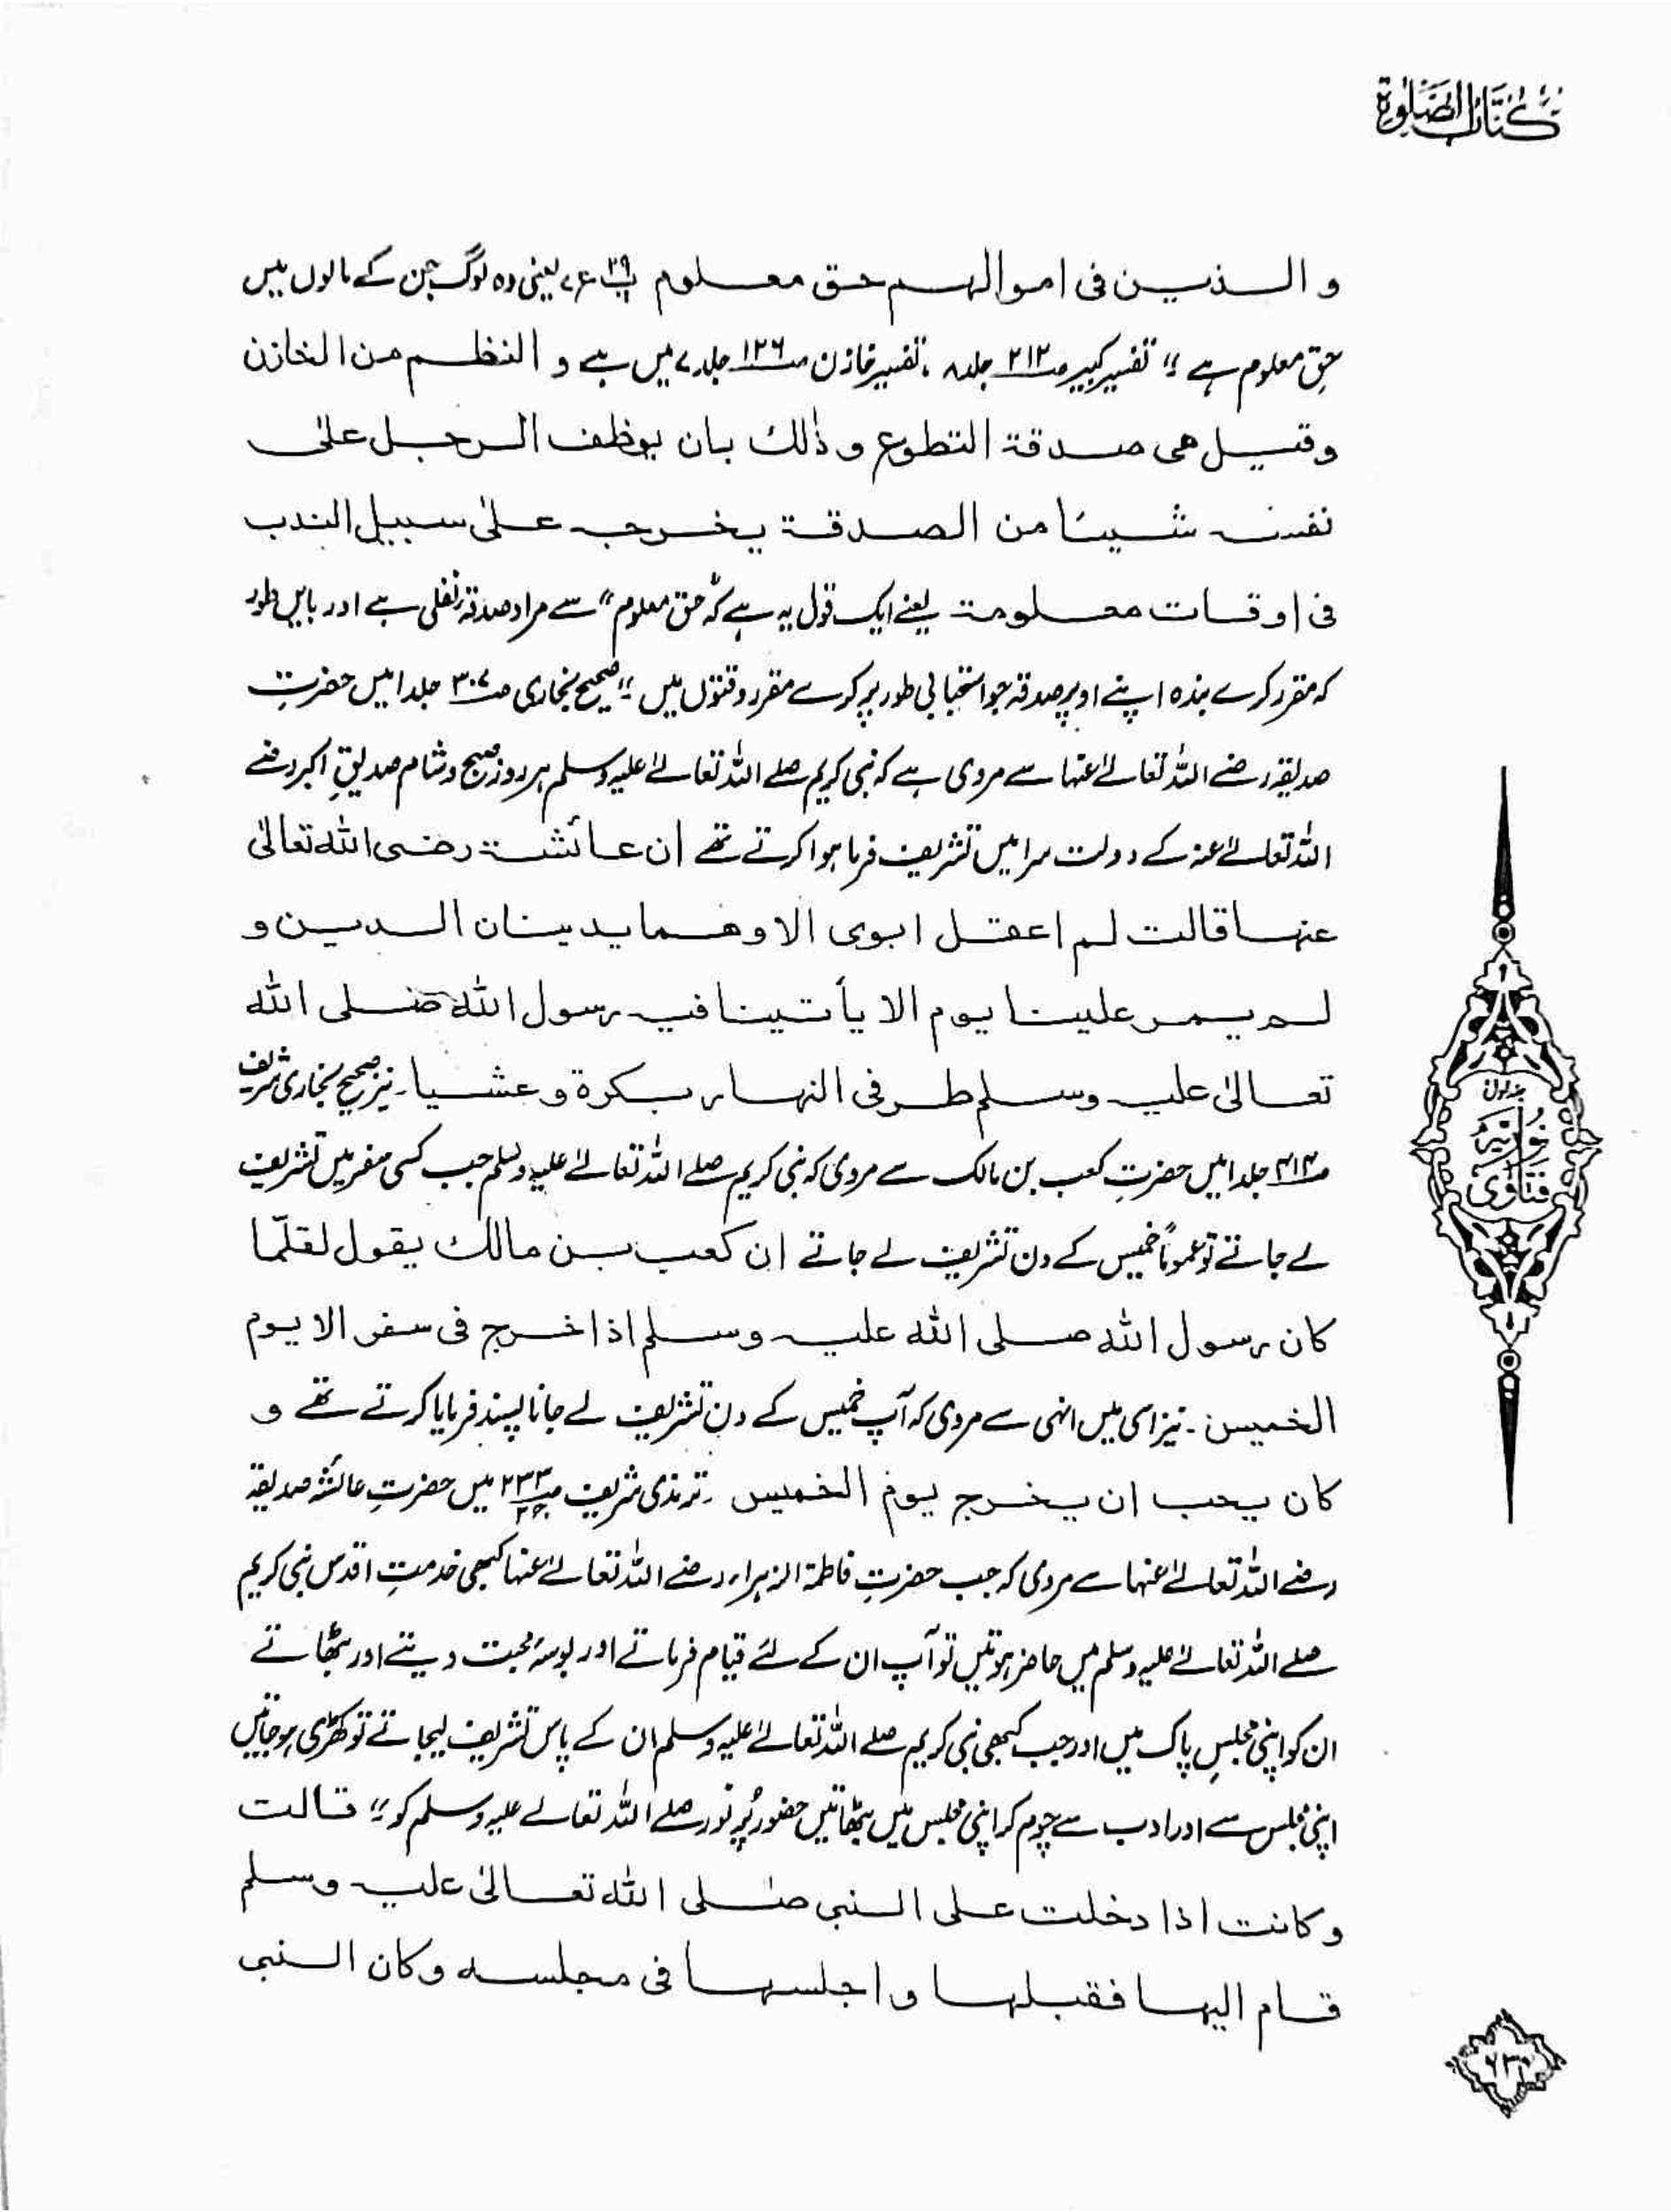 كتاب الصلوة
والذين فى اموالهم حق معلوم پ۲۹ ع۷ یعنی وہ لوگ جن کے مالوں میں
حق معلوم ہے“ تفسیر کبیر ص۲۱۳ جلد۸ ، تفسیر خازن ص۱۲۶ جلد۷ میں ہے و النظم من الخازن
وقيل هى صدقة التطوع و ذٰلك بان يوظف الرجل علىٰ
نفسه شيئا من الصدقة يخرجه علىٰ سبيل الندب
فى اوقات معلومة یعنے ایک قول یہ ہے کہ ”حق معلوم“ سے مراد صدقہ نفلی ہے اور بایں طور
کہ مقرر کرے بندہ اپنے اوپر صدقہ جو استحبابی طور پر کرے مقرر وقتوں میں“ صحیح بخاری ص۳۰۷ جلد۱ میں حضرتِ
صدیقہ رضے اللہ تعالےٰ عنہا سے مروی ہے کہ نبی کریم صلے اللہ تعالےٰ علیہ وسلم ہر روز صبح و شام صدیقِ اکبر رضے
اللہ تعالےٰ عنہ کے دولت سرا میں تشریف فرما ہوا کرتے تھے ان عائشة رضى الله تعالىٰ
عنها قالت لم اعقل ابوى الا وهما يدينان الدين و
لم يمر علينا يوم الا يأتينا فيه رسول الله صلى الله
تعالىٰ عليه وسلم طرفى النهار بكرة وعشيا۔ نیز صحیح بخاری شریف
ص۴۱۴ جلد۱ میں حضرتِ کعب بن مالک سے مروی کہ نبی کریم صلے اللہ تعالےٰ علیہ وسلم جب کسی سفر میں تشریف
لے جاتے تو عموماً خمیس کے دن تشریف لے جاتے ان كعب بن مالك يقول لقلّما
كان رسول الله صلى الله عليه وسلم اذا خرج فى سفر الا يوم
الخميس۔ نیز اسی میں انہی سے مروی کہ آپ خمیس کے دن تشریف لے جانا پسند فرمایا کرتے تھے و
كان يحب ان يخرج يوم الخميس ۔ ترمذی شریف ص۲۳۳ میں حضرتِ عائشہ صدیقہ
رضے اللہ تعالےٰ عنہا سے مروی کہ جب حضرتِ فاطمۃ الزہراء رضے اللہ تعالےٰ عنہا کبھی خدمتِ اقدس نبی کریم
صلے اللہ تعالےٰ علیہ وسلم میں حاضر ہوتیں تو آپ ان کے لئے قیام فرماتے اور بوسۂ محبت دیتے اور بٹھاتے
ان کو اپنی مجلسِ پاک میں اور جب کبھی نبی کریم صلے اللہ تعالےٰ علیہ وسلم ان کے پاس تشریف لیجاتے تو کھڑی ہو جاتیں
اپنی مجلس سے اور ادب سے چوم کر اپنی مجلس میں بٹھاتیں حضور پُر نور صلے اللہ تعالےٰ علیہ وسلم کو“ قالت
وكانت اذا دخلت على النبى صلى الله تعالىٰ عليه وسلم
قام اليها فقبلها واجلسها فى مجلسه وكان النبى
جلد اول
نوریہ
فتاوٰی
۶۳۰